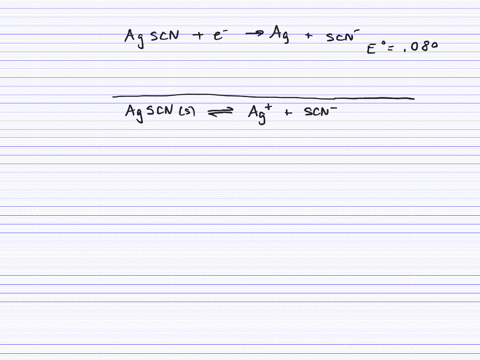 AgSCN + e⁻ → Ag + SCN⁻
E° = .080
AgSCN(s) ⇌ Ag⁺ + SCN⁻